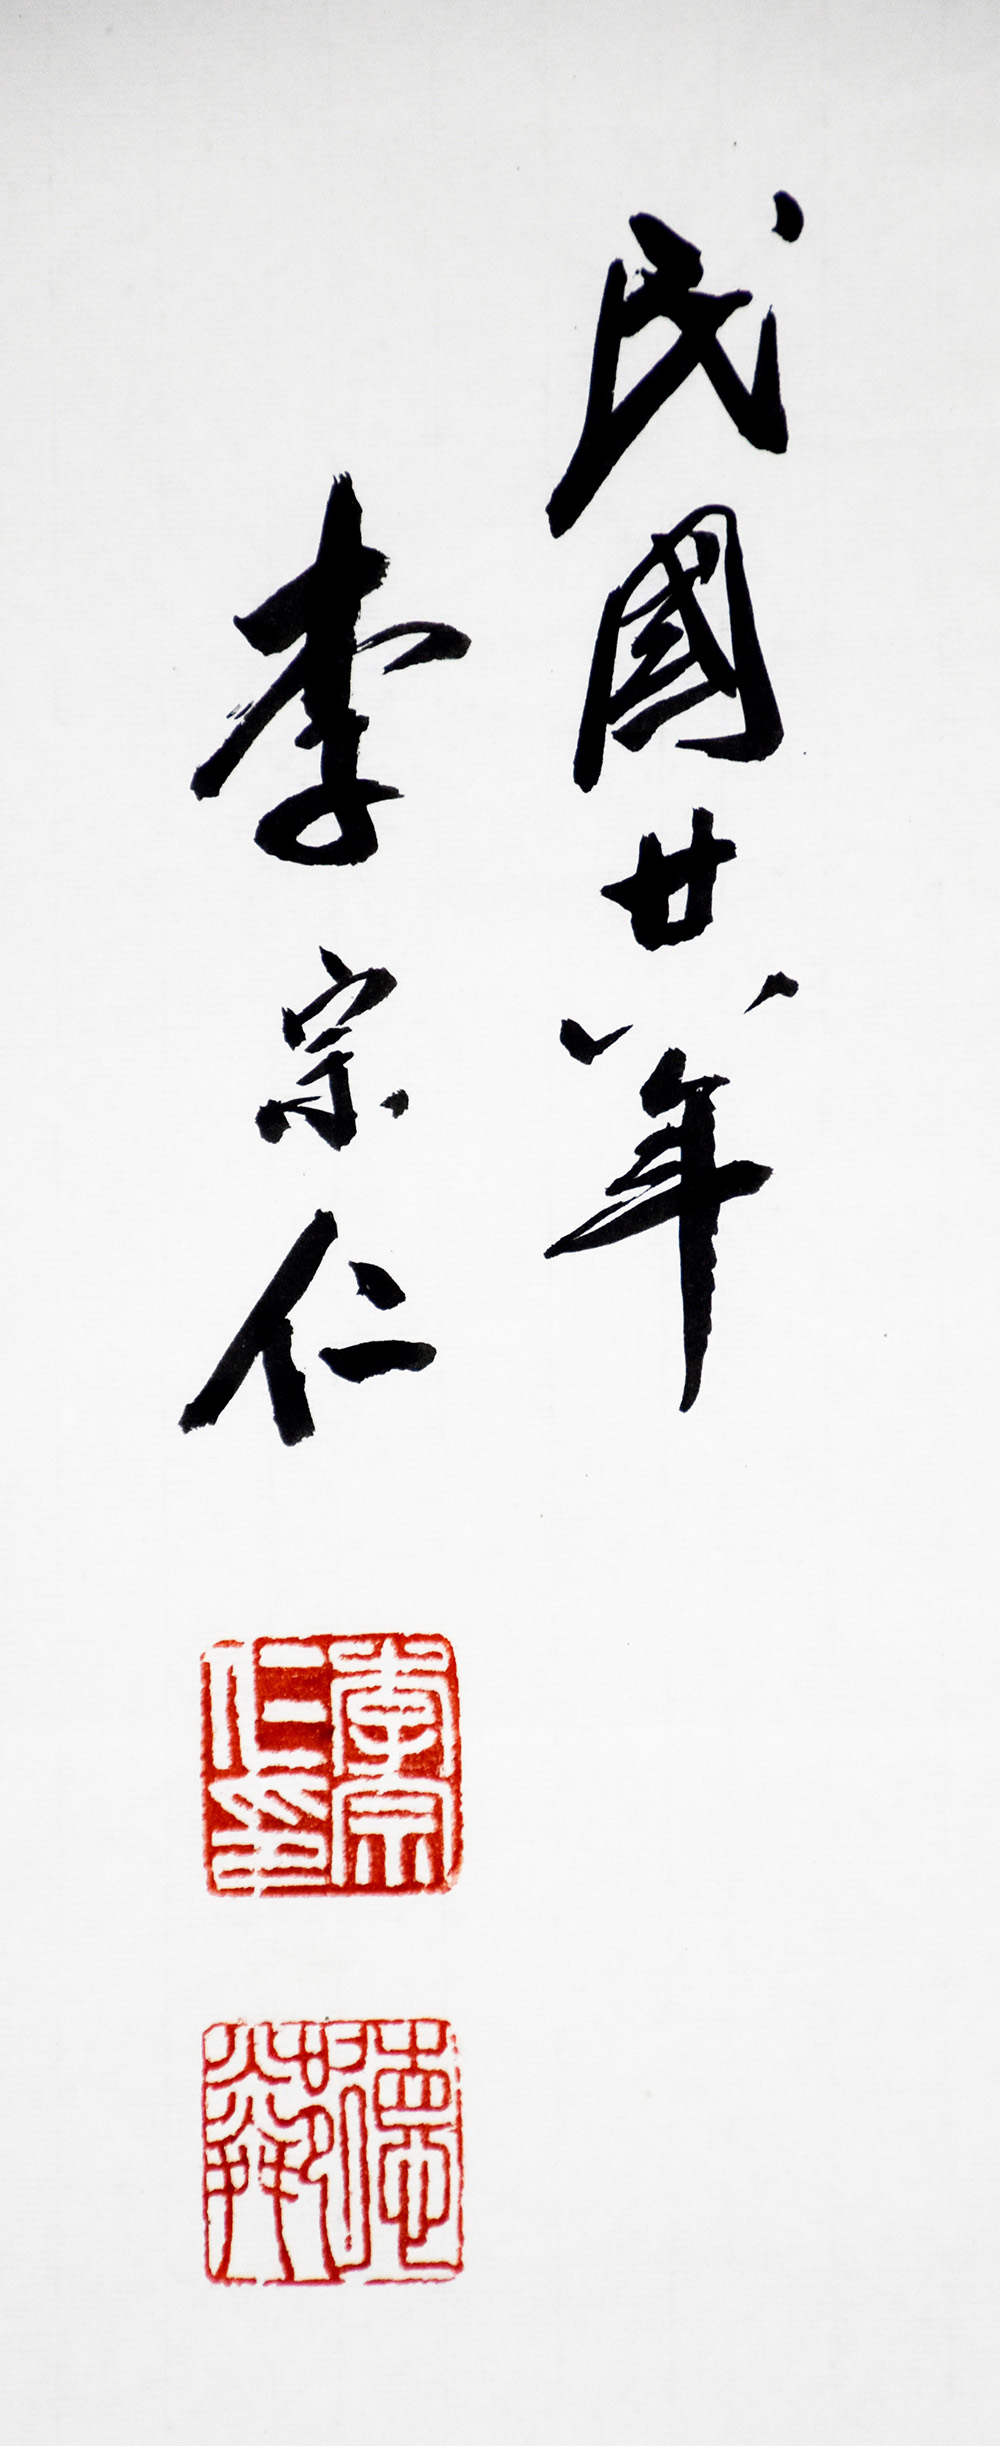 民國廿八年
李宗仁
李宗仁印
德鄰